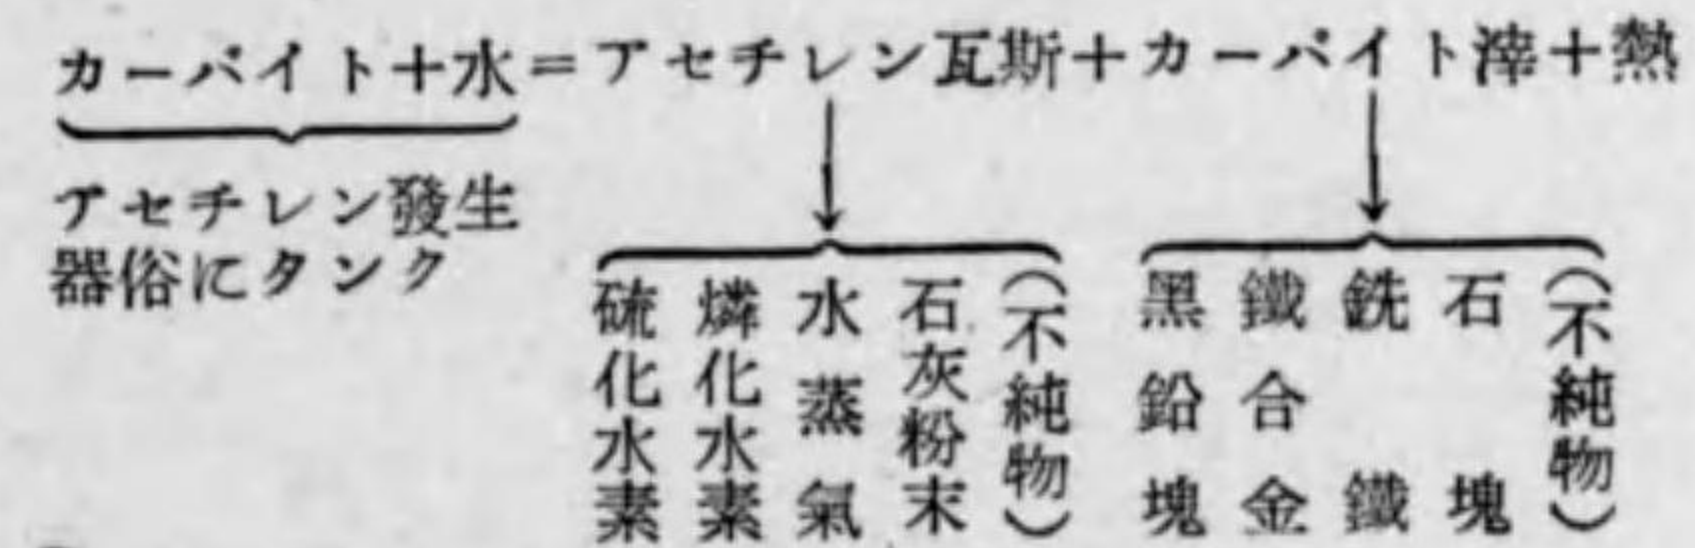 カーバイト＋水＝アセチレン瓦斯＋カーバイト滓＋熱
アセチレン發生
器俗にタンク
（不純物）
石灰粉末
水蒸氣
燐化水素
硫化水素
（不純物）
石塊
銑鐵
鐵合金
黑鉛塊